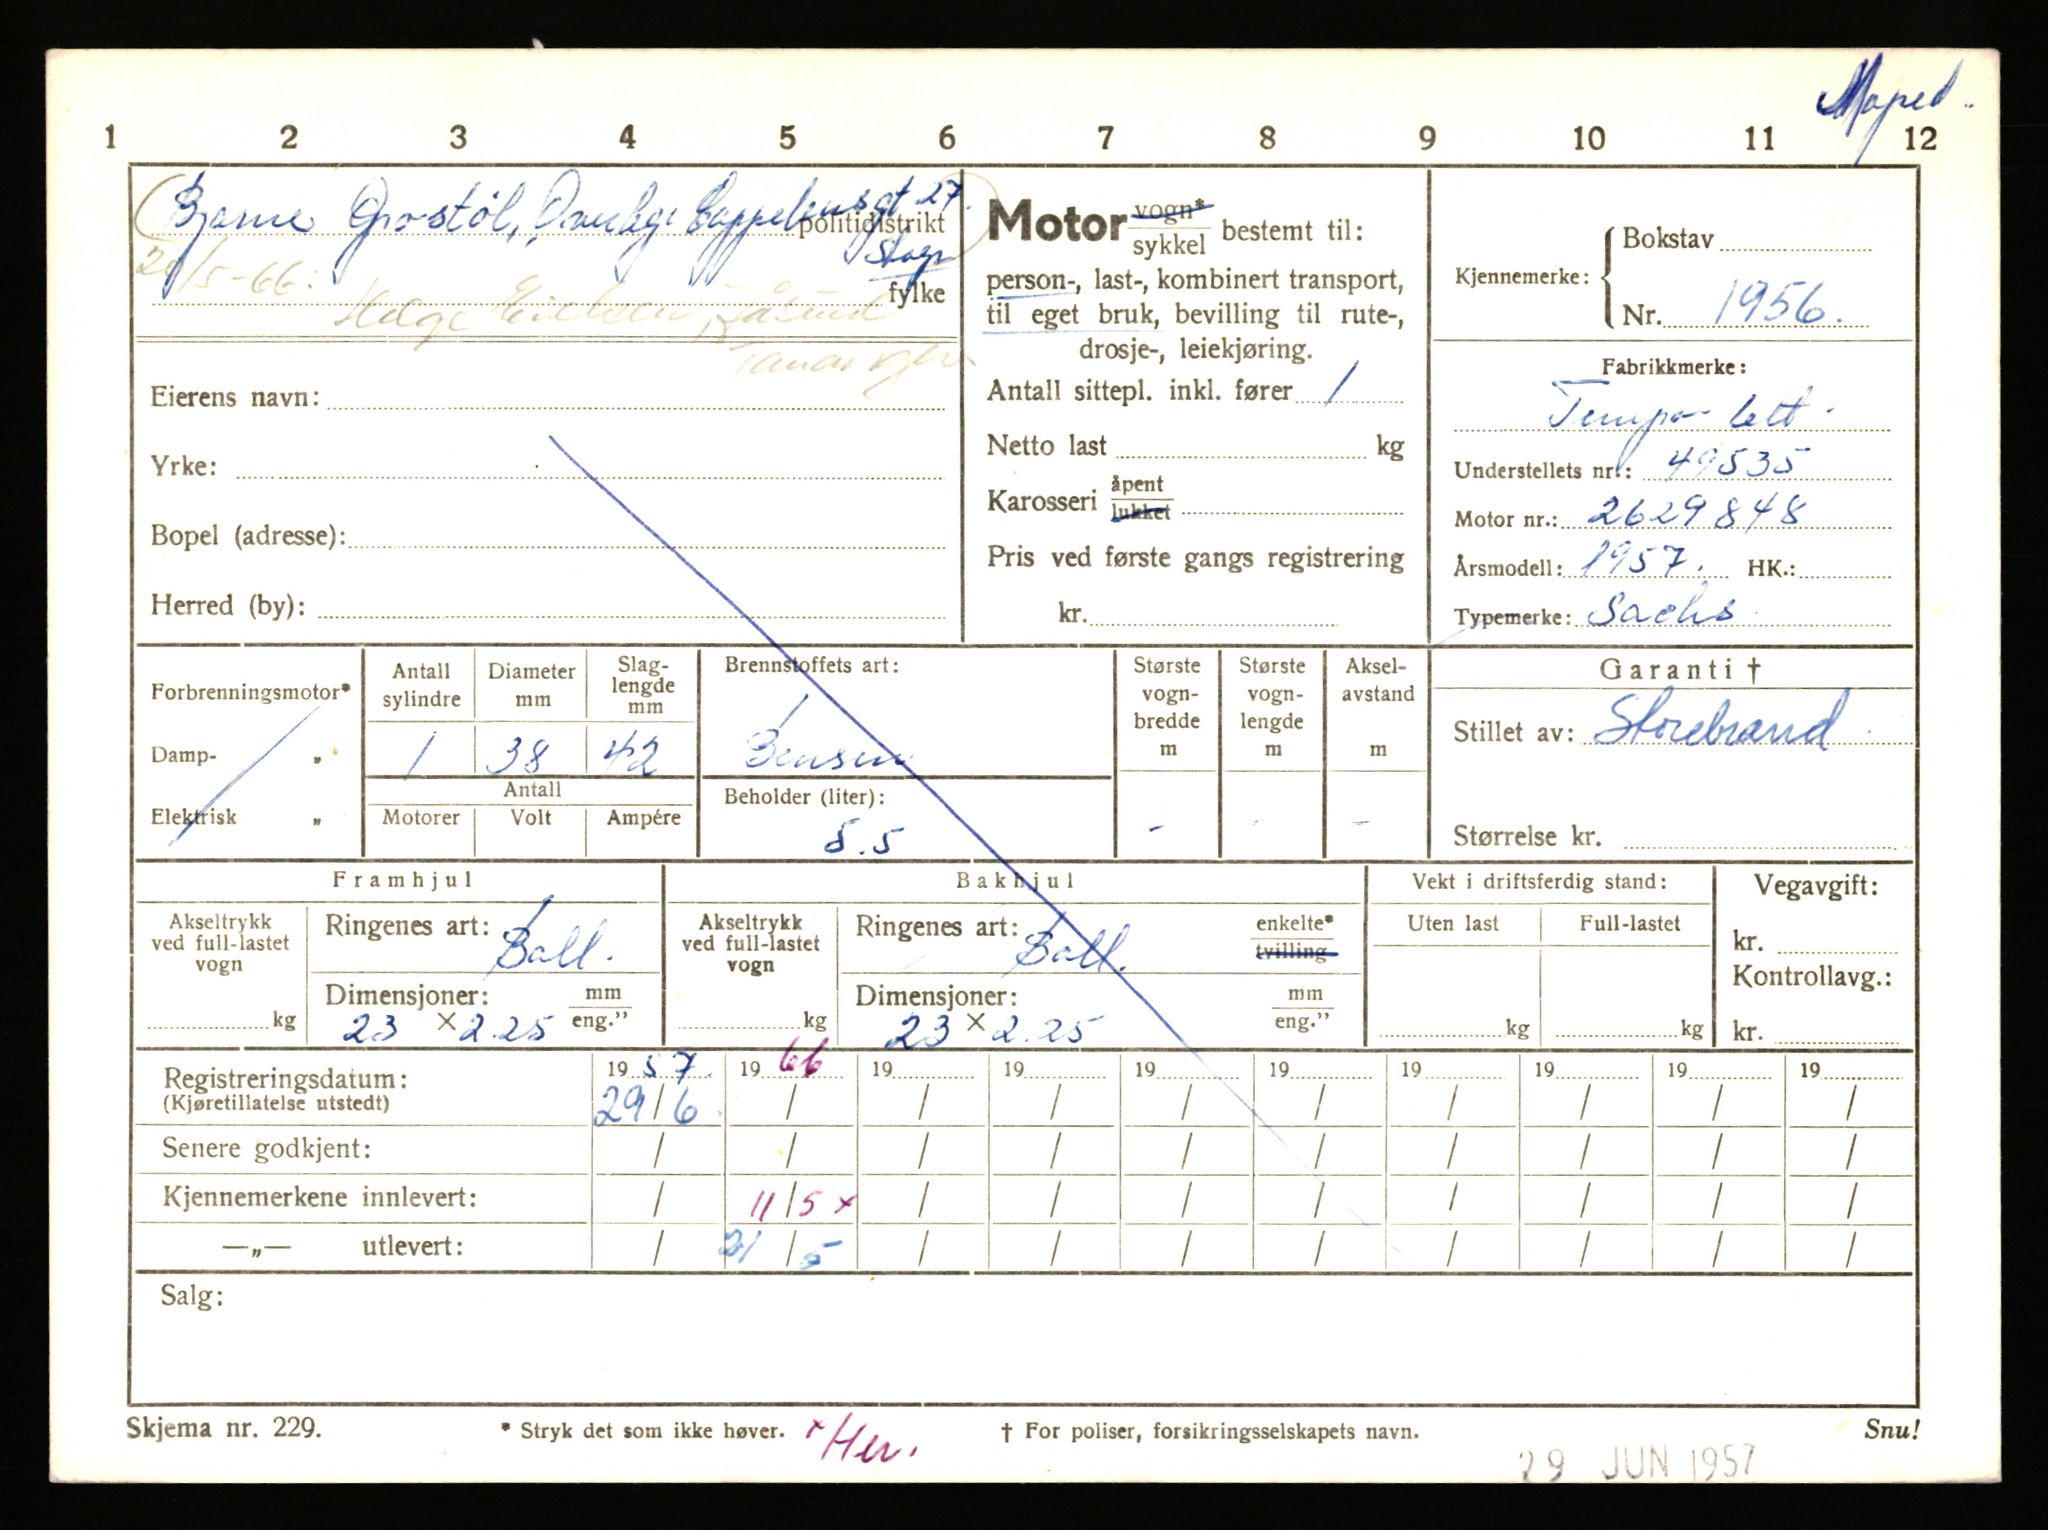 Moped.
1 2 3 4 5 6 7 8 9 10 11 12
Bjarne Grostøl, Overlege Cappelensgt 27.
politidistrikt
Stvgr
29/5-66: Helge Eielsen, Råsund
fylke
Tananger
Eierens navn:
Yrke:
Bopel (adresse):
Herred (by):
Motor vogn* sykkel bestemt til:
person-, last-, kombinert transport,
til eget bruk, bevilling til rute-,
drosje-, leiekjøring.
Antall sittepl. inkl. fører 1
Netto last kg
Karosseri åpent lukket
Pris ved første gangs registrering
kr.
Kjennemerke: Bokstav
Nr. 1956.
Fabrikkmerke:
Tempo lett.
Understellets nr.: 49535
Motor nr.: 2629848
Årsmodell: 1957. HK.:
Typemerke: Sachs
Forbrenningsmotor*
Damp- „
Elektrisk „
Antall sylindre
Diameter mm
Slag-lengde mm
1 38 42
Antall
Motorer Volt Ampére
Brennstoffets art:
Bensin
Beholder (liter):
5.5
Største vogn-bredde m
Største vogn-lengde m
Aksel-avstand m
- - -
Garanti †
Stillet av: Storebrand
Størrelse kr.
Framhjul
Akseltrykk ved full-lastet vogn
kg
Ringenes art: Ball.
Dimensjoner: mm eng."
23 × 2.25
Bakhjul
Akseltrykk ved full-lastet vogn
kg
Ringenes art: Ball.
enkelte* tvilling
Dimensjoner: mm eng."
23 × 2.25
Vekt i driftsferdig stand:
Uten last Full-lastet
kg kg
Vegavgift:
kr.
Kontrollavg.:
kr.
19 57. 19 66 19 19 19 19 19 19 19 19
Registreringsdatum: 29/6. / / / / / / / / /
(Kjøretillatelse utstedt)
Senere godkjent: / / / / / / / / / /
Kjennemerkene innlevert: / 11/5 x / / / / / / / /
—„— utlevert: / 21/5 / / / / / / / /
Salg:
Skjema nr. 229.
* Stryk det som ikke høver.
x Her.
† For poliser, forsikringsselskapets navn.
Snu!
29 JUN 1957